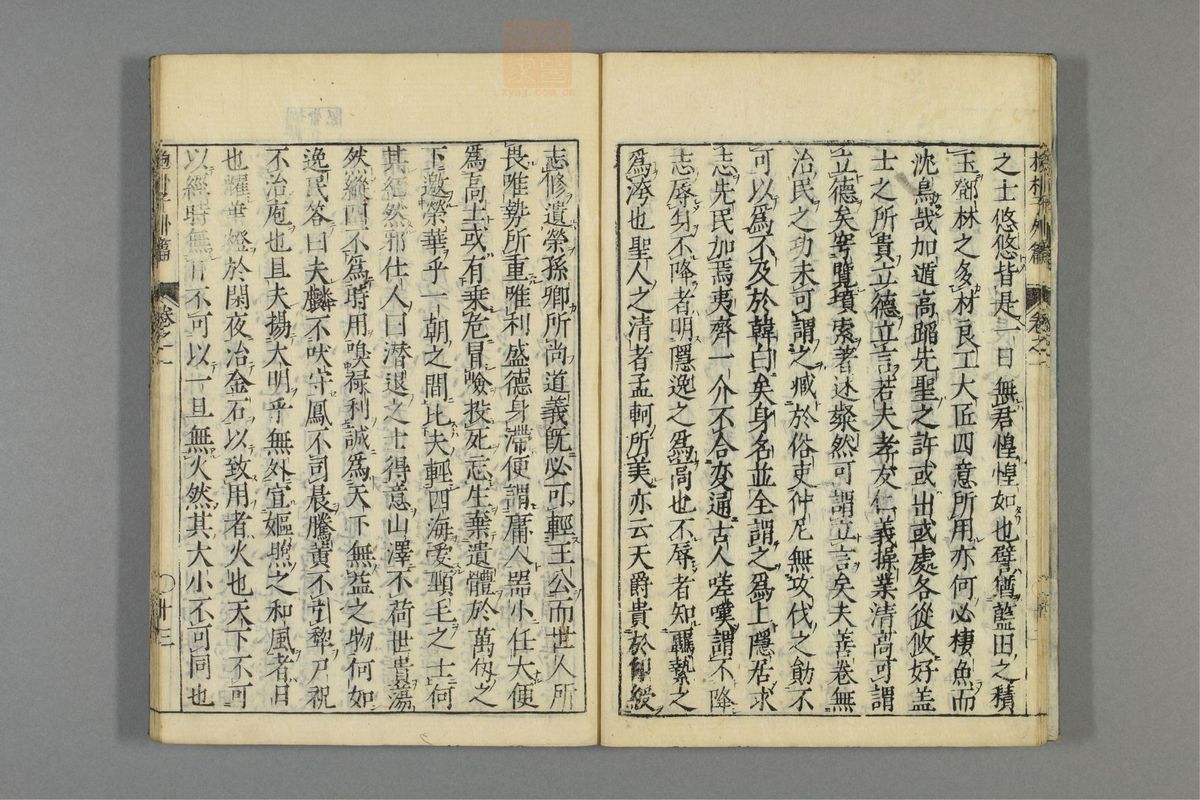 抱朴子外篇 卷之一
之士悠悠皆是一日無君惶惶如也譬猶藍田之積
玉鄧林之多材良工大匠四意所用亦何必棲魚而
沈鳥哉加遁高蹈先聖之許或出或處各從攸好盖
士之所貴立德立言若夫孝友仁義操業清高可謂
立德矣窮覽墳索著述粲然可謂立言矣夫善卷無
治民之功未可謂之減於俗吏仲尼無攻伐之勛不
可以爲不及於韓白矣身名並全謂之爲上隱居求
志先民加焉夷齊一介不合变通古人嗟嘆謂不降
志辱身不降者明隱逸之爲高也不辱者知羈縶之
爲洿也聖人之清者孟軻所美亦云天爵貴於印綬
志修遺榮孫卿所尚道義既必可輕王公而世人所
畏唯勢所重唯利盛德身滯便謂庸人器小任大便
爲高士或有乗危冒嶮投死忘生棄遺體於萬仭之
下邀榮華乎一朝之間比夫輕四海爱脛毛之士何
其迥然邪仕人曰潜退之士得意山澤不荷世貴蕩
然縱四不爲時用嗅禄利誠爲天下無益之物何如
逸民答曰夫麟不吠守鳳不司晨騰黄不引犂尸祝
不治庖也且夫揚大明乎無外宣嫗煦之和風者日
也耀華燈於閑夜冶金石以致用者火也天下不可
以經時無日不可以一旦無火然其大小不可同也
外篇 卷之一 〇十三
zysj.com.cn